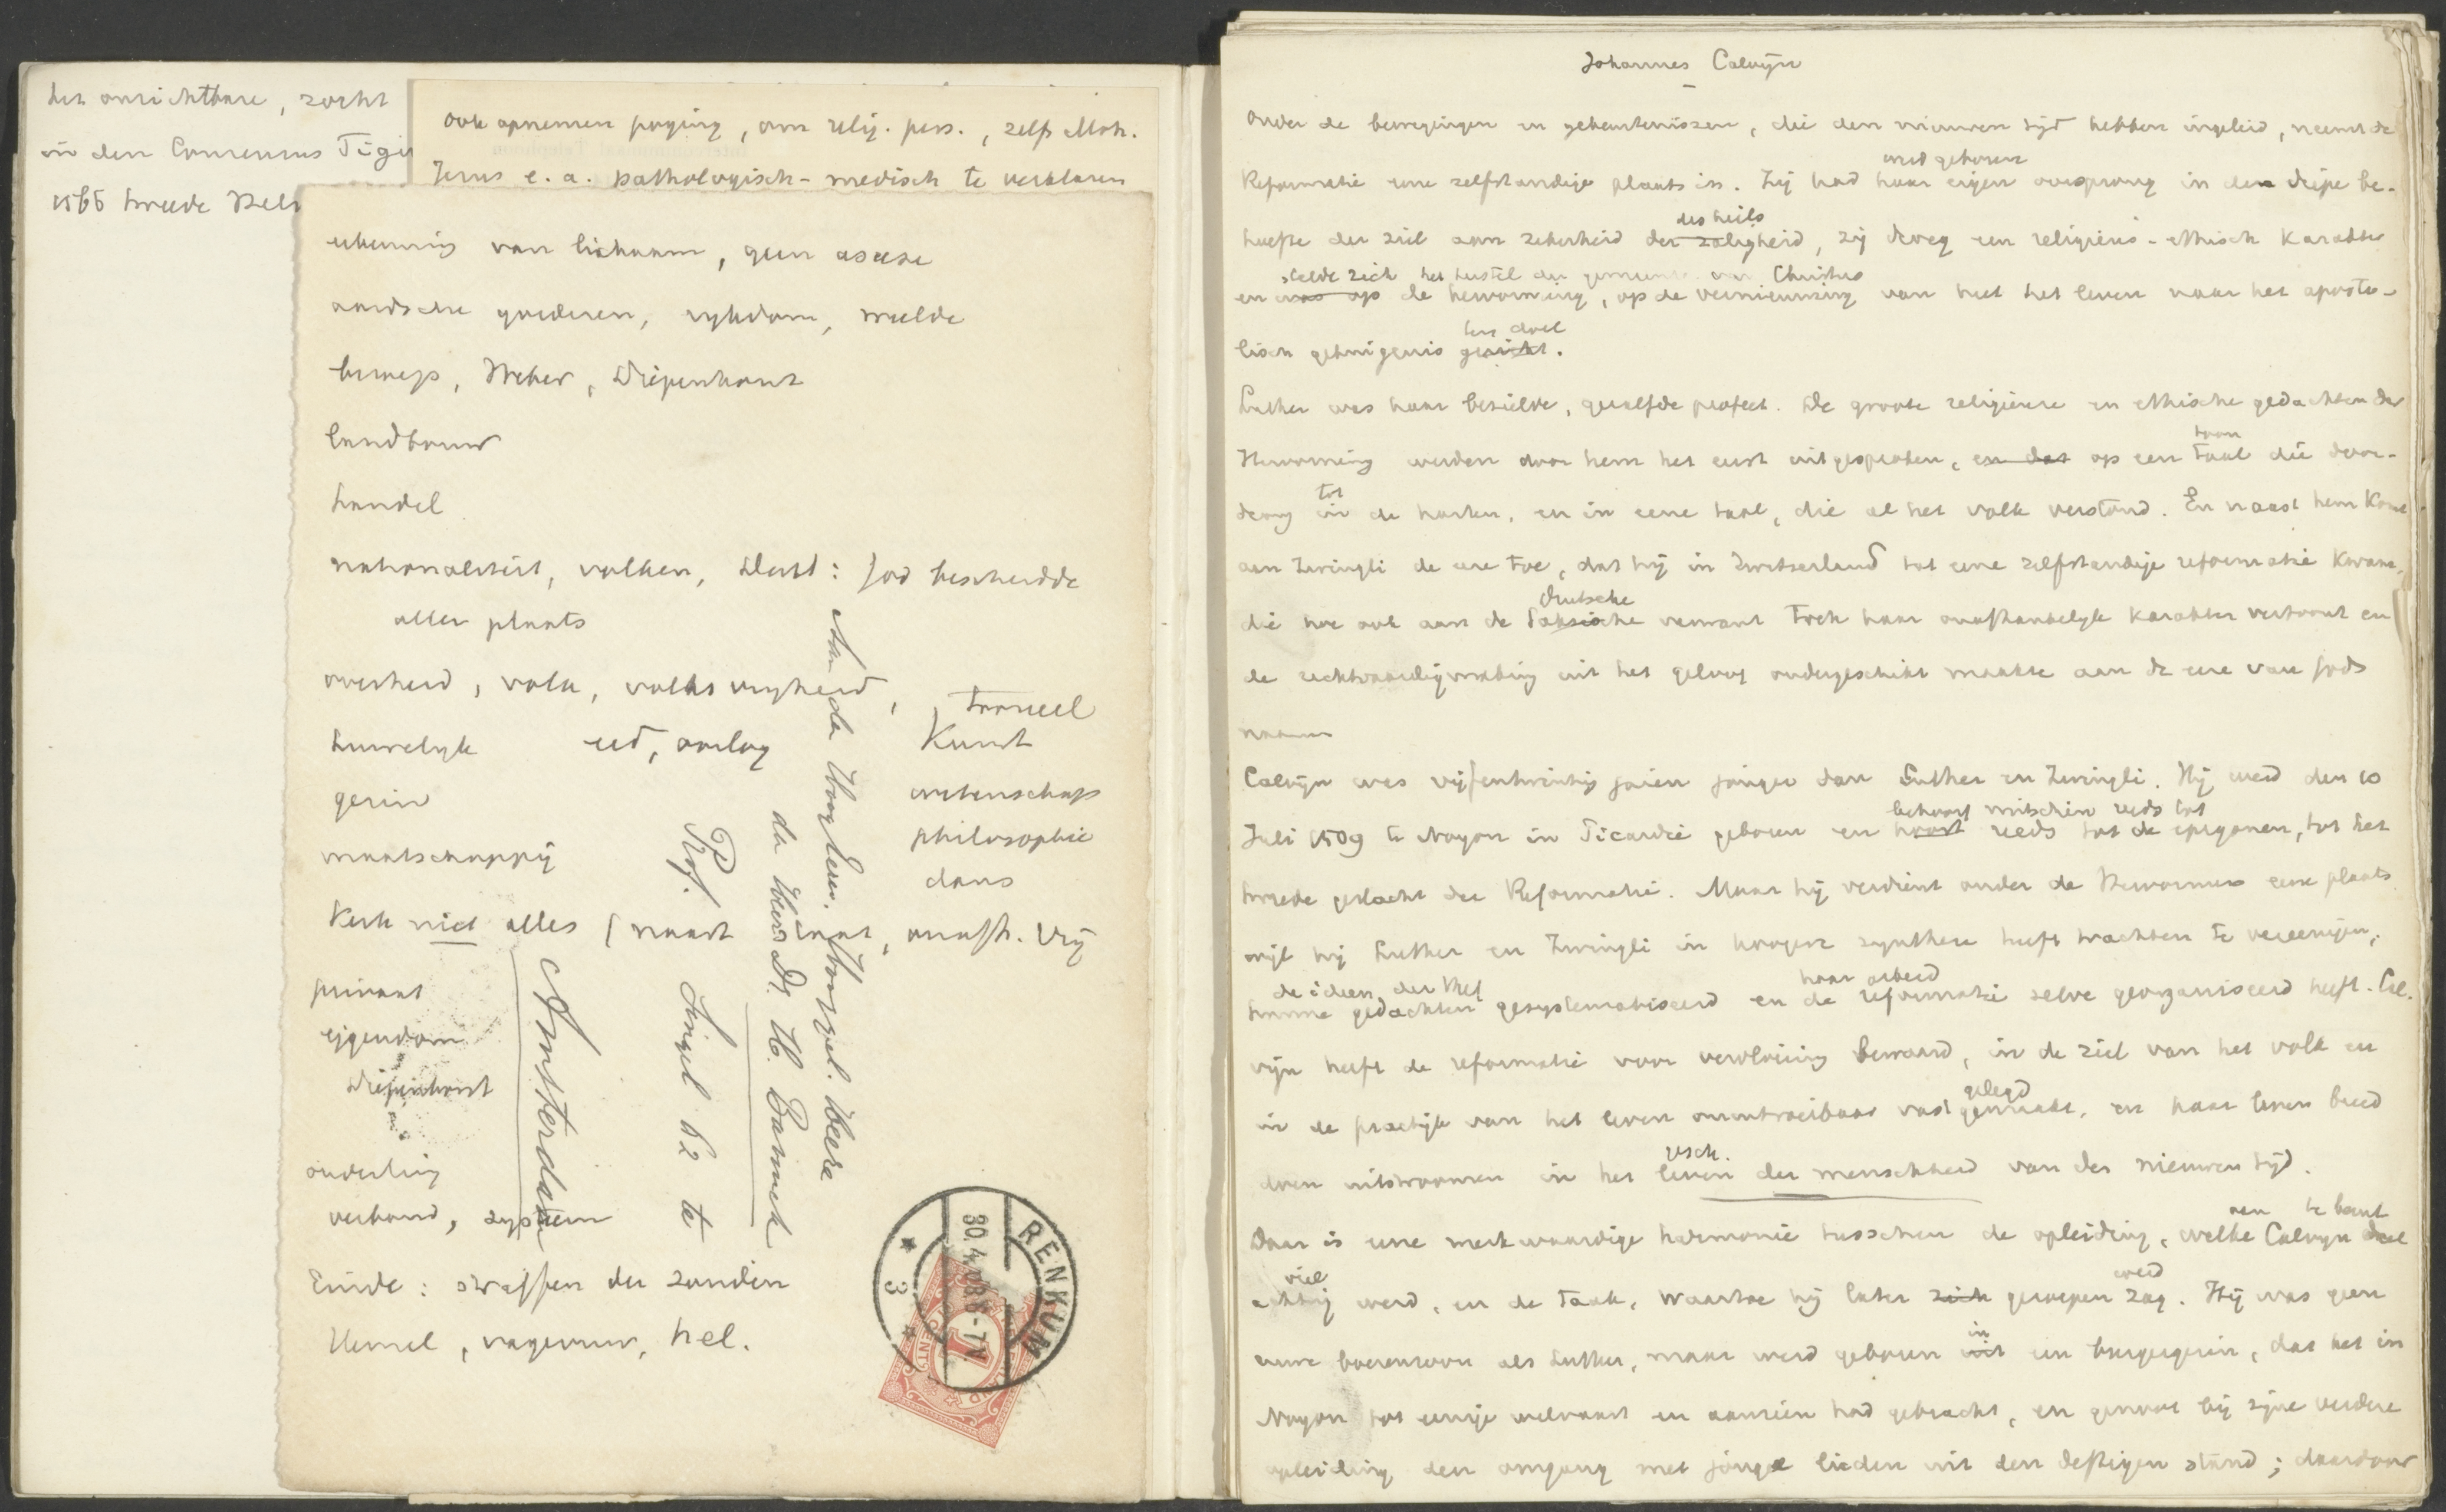 het onzichtbare, zocht
in den Consensus Tigu
1566 tweede Helv
ook opnemen poging, om relig. pers., zelfs Moh.
Jezus e.a. pathologisch-medisch te verklaren
van lichaam, geen ascese
aardsche goederen, rijkdom, weelde
beroep, Weber, Diepenhorst
landbouw
handel
nationaliteit, volken, Dordt: God bescheidde
aller plaats
overheid, volk, volksvrijheid,
tooneel
huwelijk eed, oorlog
Kunst
gezin
wetenschap
philosophie
maatschappij
dans
Kerk niet alles (naast staat, onafh. vrij
privaat
eigendom
Diepenhorst
onderling
verband, systeem
Einde: straffen der zonden
Hemel, vagevuur, hel.
Aan de Hoogeerw. Hooggel. Heere
de Heer Dr. H. Bavinck
Prof.
Singel 62 te
Amsterdam
RENKUM
30.4.08 8-
3
1
CENT
Johannes Calvijn
Onder de bewegingen en gebeurtenissen, die den nieuwen tijd hebben ingeleid, neemt de
werd geboren
Reformatie eene zelfstandige plaats in. Zij had haar eigen oorsprong in den diepe be-
des heils
hoefte der ziel aan zekerheid der zaligheid, zij droeg een religieus-ethisch karakter
stelde zich het herstel der gemeente van Christus
en was op de hervorming, op de vernieuwing van heel het leven naar het aposto-
ten doel
lisch getuigenis gericht.
Luther was haar bezielde, gezalfde profeet. De groote religieuse en ethische gedachten der
toon
Hervorming werden door hem het eerst uitgesproken, en dat op een taal die door-
tot
drong in de harten, en in eene taal, die al het volk verstond. En naast hem komt
aan Zwingli de eere toe, dat hij in Zwitserland tot eene zelfstandige reformatie kwam,
duitsche
die hoe ook aan de Saksische verwant toch haar onafhankelijk karakter vertoont en
de rechtvaardigmaking uit het geloof ondergeschikt maakte aan de eere van Gods
naam
Calvijn was vijfentwintig jaren jonger dan Luther en Zwingli. Hij werd den 10
behoort mitsdien reeds tot
Juli 1509 te Noyon in Picardie geboren en hoort reeds tot de epigonen, tot het
tweede geslacht der Reformatie. Maar hij verdient onder de Hervormers eene plaats
wijl hij Luther en Zwingli in hoogere synthese heeft trachten te vereenigen,
de ideen der Ref haar arbeid
gedachten gesystematiseerd en de reformatie zelve georganiseerd heeft. Cal-
vijn heeft de reformatie voor vervloeiing bewaard, in de ziel van het volk en
gelegd
in de practijk van het leven onuitroeibaar vast gemaakt, en haar leven breed
gesch.
doen uitstroomen in het leven der menschheid van den nieuwen tijd.
aan te beurt
Daar is eene merkwaardige harmonie tusschen de opleiding, welke Calvijn deel
viel werd
achtig werd, en de taak, waartoe hij later zich geroepen zag. Hij was geen
in
eene boerenzoon als Luther, maar werd geboren uit een burgergezin, dat het in
Noyon tot eenige welvaart en aanzien had gebracht, en genoot bij zijne verdere
opleiding den omgang met jonge lieden uit den deftigen stand; daardoor